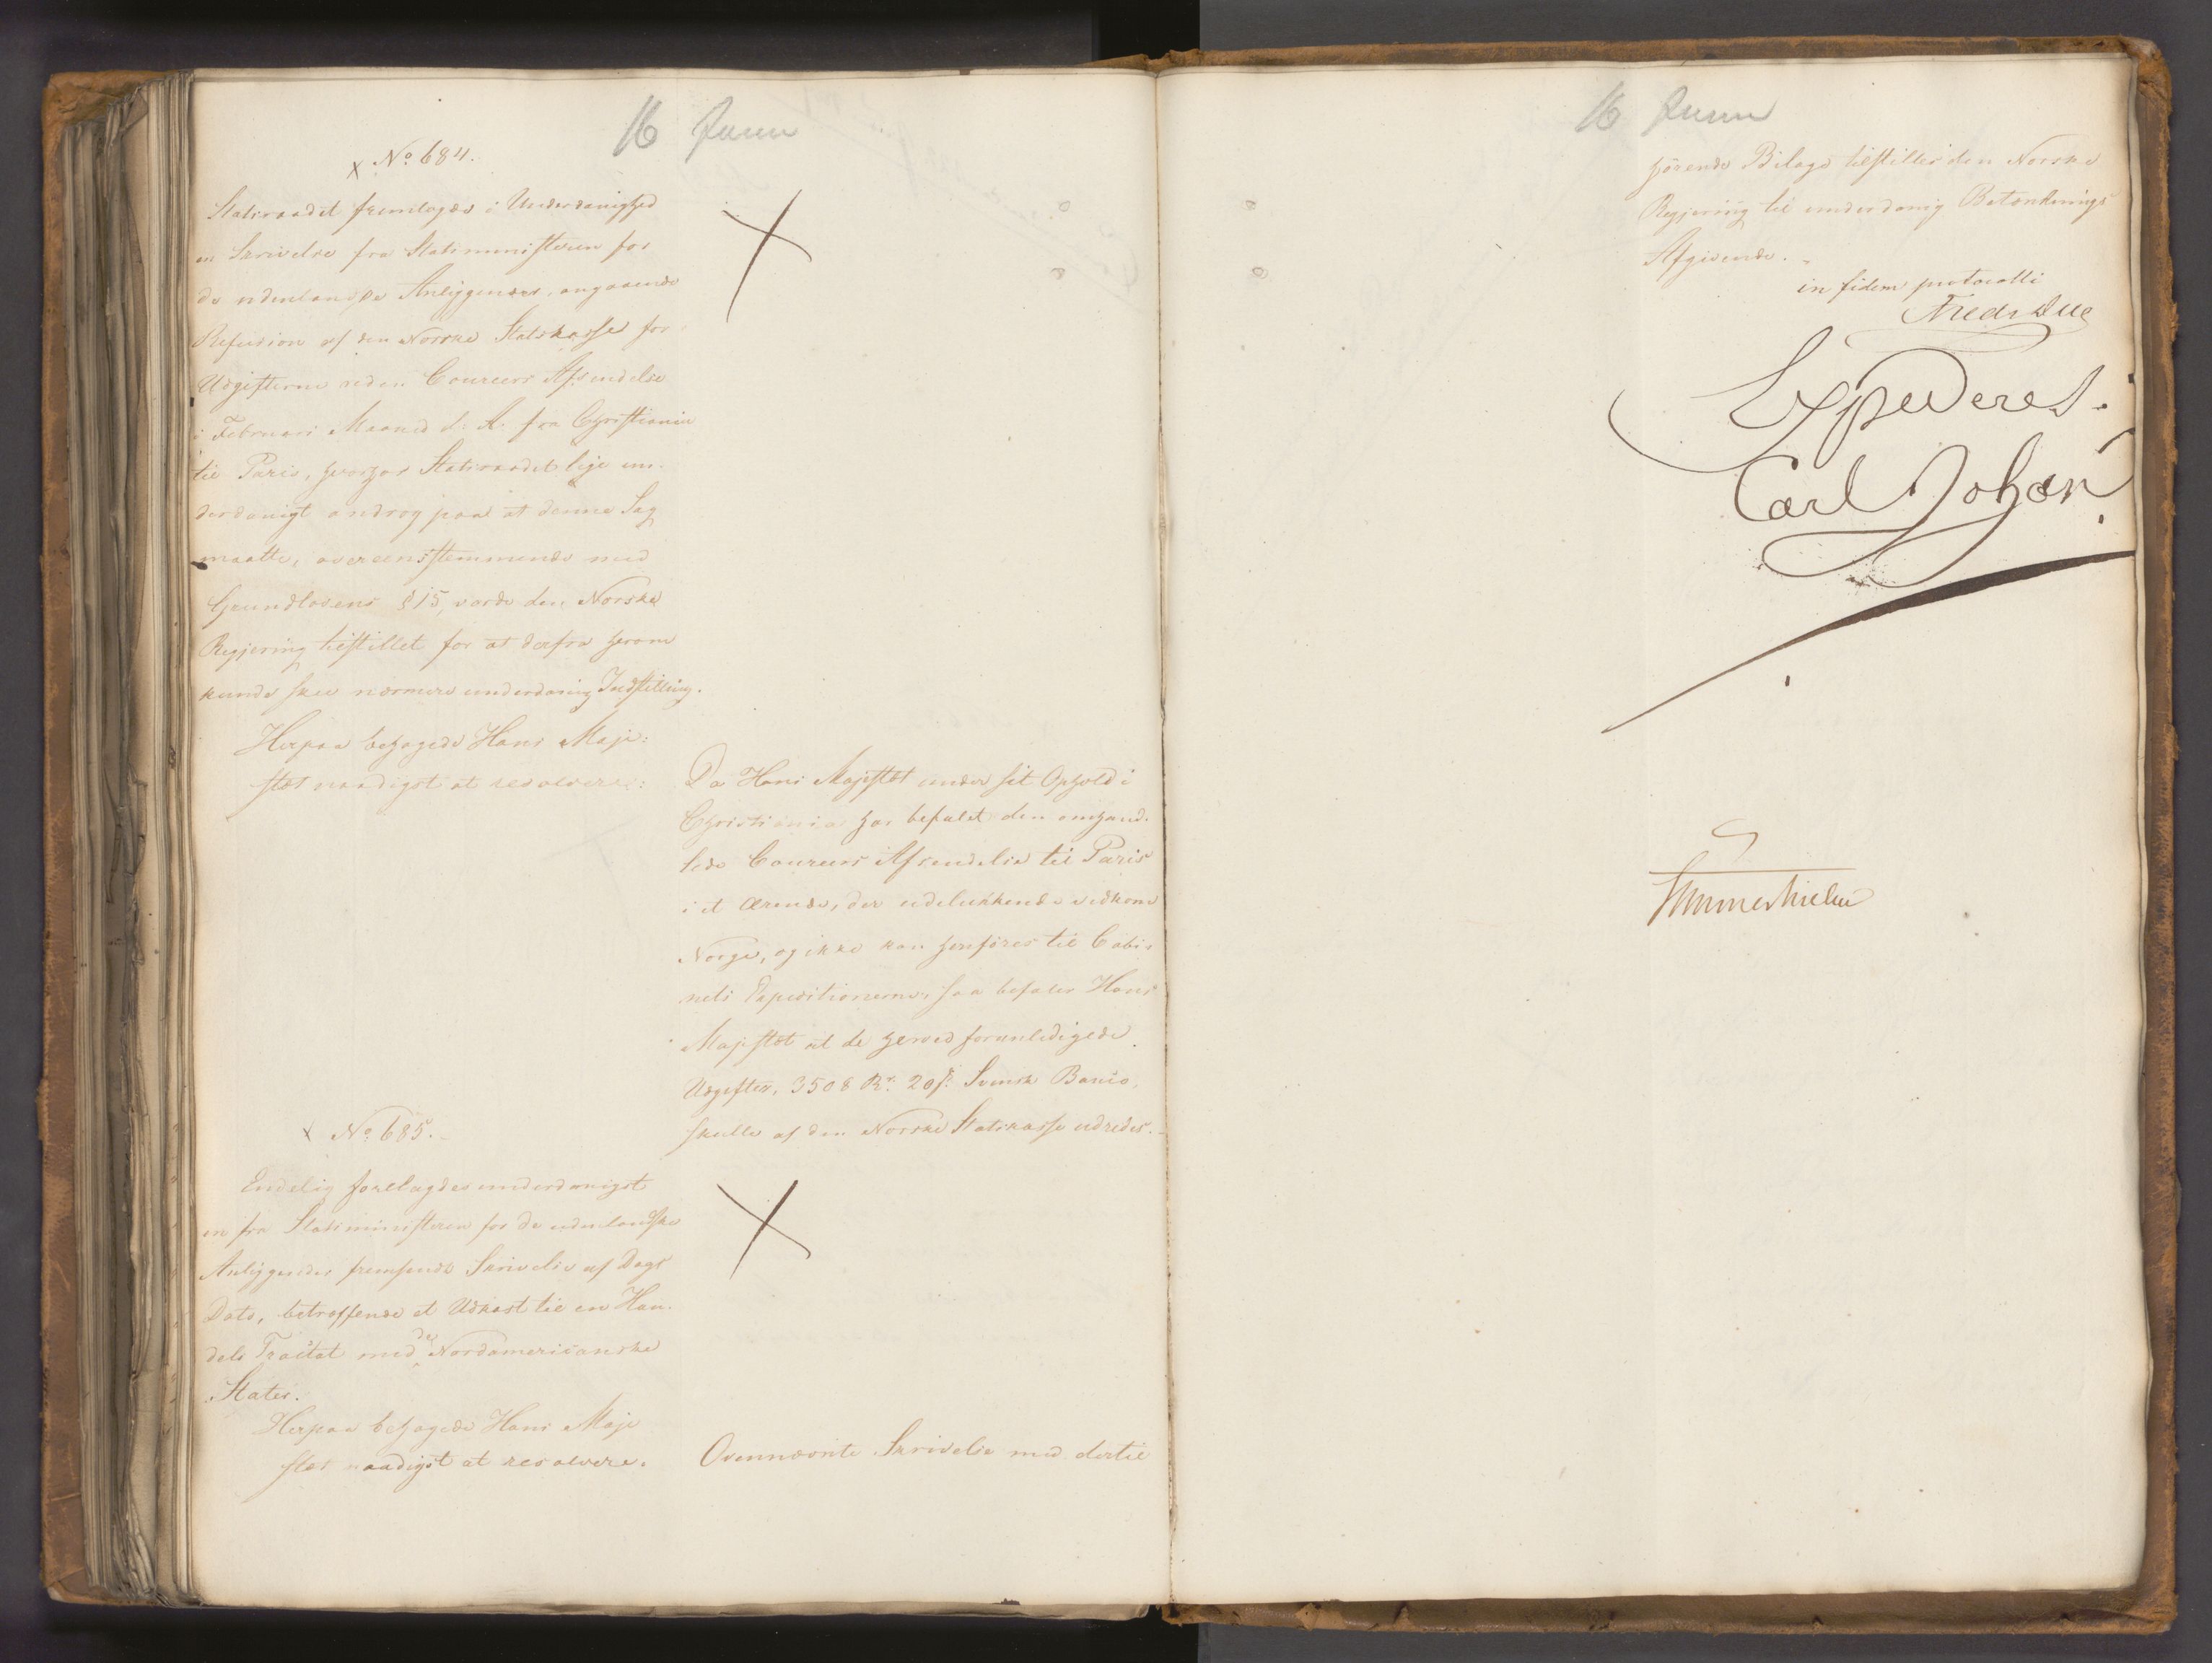 16 Juni
x No 684.
Statsraadet fremlagde i Underdanighed
en Skrivelse fra Statsministeren for
de udenlandske Anliggender, angaaende
Refusion af den Norske Statskasse for
Udgifterne ved en Coureers Afsendelse
i Februari Maaned d: A. fra Christiania
til Paris, hvorhos Statsraadet lige un-
derdanigt androg paa at denne Sag
maatte, overeensstemmende med
Grundlovens § 15, vorde den Norske
Regjering tilstillet for at derfra herom
kunde skee nærmere underdanig Indstilling.
Herpaa behagede Hans Maje:
stæt naadigst at resolvere:
Da Hans Majestæt under sit Ophold i
Christiania har befalet den omhand-
lede Coureers Afsendelse til Paris
i et Ærende, der udelukkende vedkom
Norge, og ikke kan henføres til Cabi-
nets Expeditionerne, saa befaler Hans
Majestæt at de herved foranledigede
Udgifter, 3508 Rr. 20 s. Svensk Banco,
skulle af den Norske Statskasse udredes.
x No 685.
Endelig forelagdes underdanigst
en fra Statsministeren for de udenlandske
Anliggender fremsendt Skrivelse af Dags
Dato, betræffende et Udkast til en Han-
dels Tractat med de Nordamericanske
Stater.
Herpaa behagede Hans Maje
stæt naadigst at resolvere.
Ovennævnte Skrivelse med dertil
16 Juni
hörende Bilage tilstilles den Norske
Regjering til underdanig Betænknings
Afgivende.
in fidem protocolli
Fredr Due
Expederes.
Carl Johan